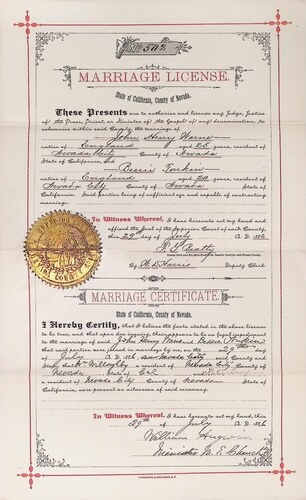 No. 502
MARRIAGE LICENSE.
State of California, County of Nevada.
These Presents are to authorize and license any Judge, Justice
of the Peace, Priest, or Minister of the Gospel of any denomination, to
solemnize within said County, the marriage of
John Henry
native of England aged 25 years, resident of
Nevada City County of Nevada
State of California, and
Bessie
native of England aged 20 years, resident of
Nevada City County of Nevada State of
California. Said parties being of sufficient age and capable of contracting
marriage.
In Witness Whereof, I have hereunto set my hand and
affixed the Seal of the Superior Court of said County,
this 29th day of July A. D. 188
Beatty
By Harris Deputy Clerk
MARRIAGE CERTIFICATE.
State of California, County of Nevada.
I Hereby Certify, that I believe the facts stated in the above license
to be true, and that upon due inquiry, there appears to be no legal impediment
to the marriage of said John Henry and Bessie
that said parties were joined in marriage by me, on the 29th day of
July A. D. 188 in Nevada City said County and
State; that Willoughby a resident of Nevada City County of
Nevada State of Cal and
a resident of Nevada City County of Nevada State of
California, were present as witnesses of said ceremony.
In Witness Whereof, I have hereunto set my hand, this
29th day of July A. D. 188
William
Minister M. E. Church